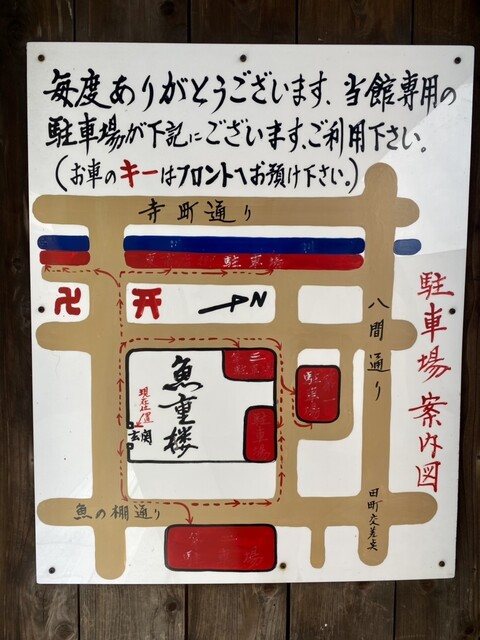 毎度ありがとうございます、当館専用の
駐車場が下記にございます、ご利用下さい。
(お車のキーはフロントへお預け下さい。)
寺町通り
川 川
駐車場
卍
N
八間通り
駐車場案内図
第三
駐車場
魚重楼
現在位置
玄関
駐車場
駐車場
魚の棚通り
田町交差点
第二
駐車場